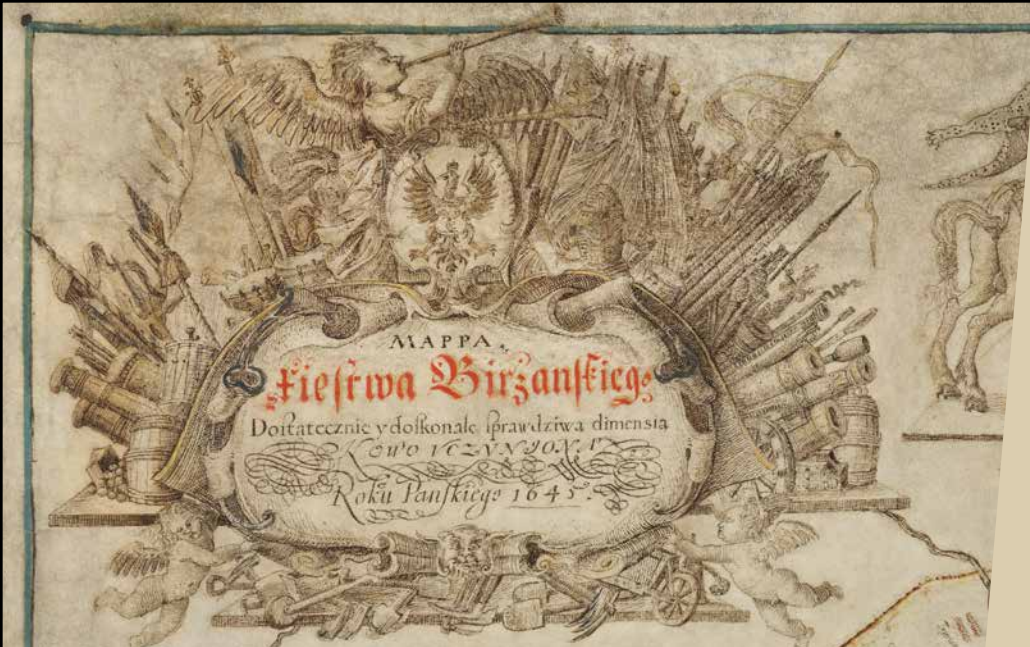 MAPPA.
Xiestwa Birżanſkiego
Doſtatecznie y doſkonale ſprawdziwą dimensią
NOWO VCZYNIONA
Roku Panſkiego 1645.